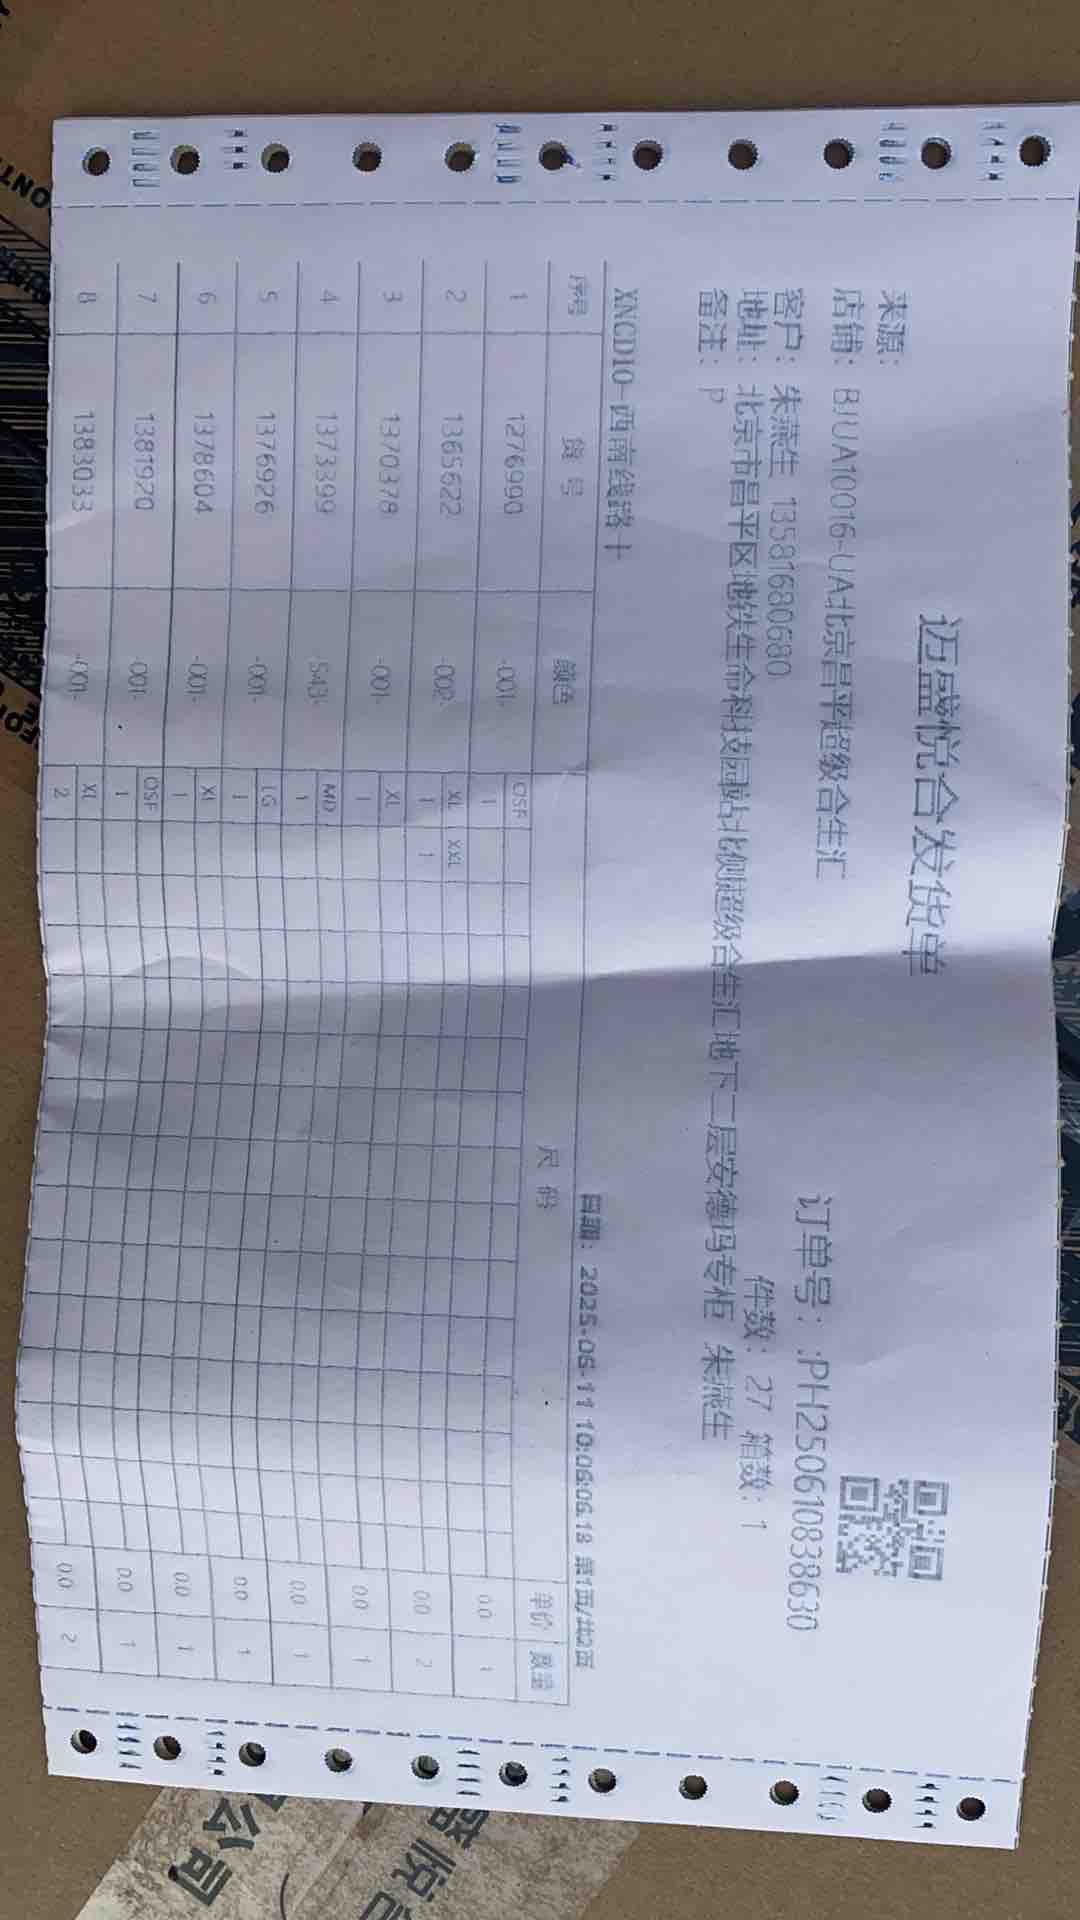 迈盛悦合发货单
来源:
店铺: BJUA10016-UA北京昌平超级合生汇
订单号: PH250610838630
客户: 朱燕生 13581680680
件数: 27 箱数: 1
地址: 北京市昌平区地铁生命科技园站北侧超级合生汇地下二层安德玛专柜 朱燕生
备注: P
XNCD10-西南线路十
日期: 2025-06-11 10:06:06.18 第1页/共2页
序号 货号 颜色 尺码 单价 数量
1 1276990 -001- OSF 0.0 1
1
2 1365622 -002- XL XXL 0.0 2
1 1
3 1370378 -001- XL 0.0 1
1
4 1373399 -543- MD 0.0 1
1
5 1376926 -001- LG 0.0 1
1
6 1378604 -001- XL 0.0 1
1
7 1381920 -001- OSF 0.0 1
1
8 1383033 -001- XL 0.0 2
2
公司